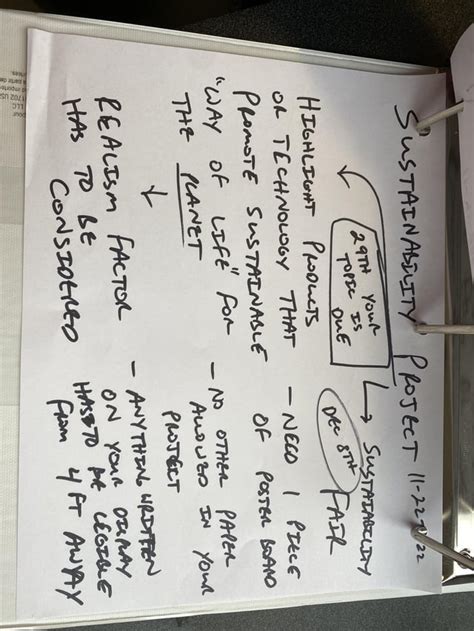 SUSTAINABILITY PROJECT 11-22-2022
29TH YOUR
TOPIC IS
DUE
SUSTAIABILITY
FAIR
DEC 8TH
HIGHLIGHT PRODUCTS
OR TECHNOLOGY THAT
PROMOTE SUSTAINABLE
"WAY OF LIFE" FOR
THE PLANET
REALISM FACTOR
HAS TO BE
CONSIDERED
- NEED 1 PIECE
OF POSTER BOARD
- NO OTHER PAPER
ALLOWED IN YOUR
PROJECT
- ANYTHING WRITTEN
ON YOUR DISPLAY
HAS TO BE LEGIBLE
FROM 4 FT AWAY